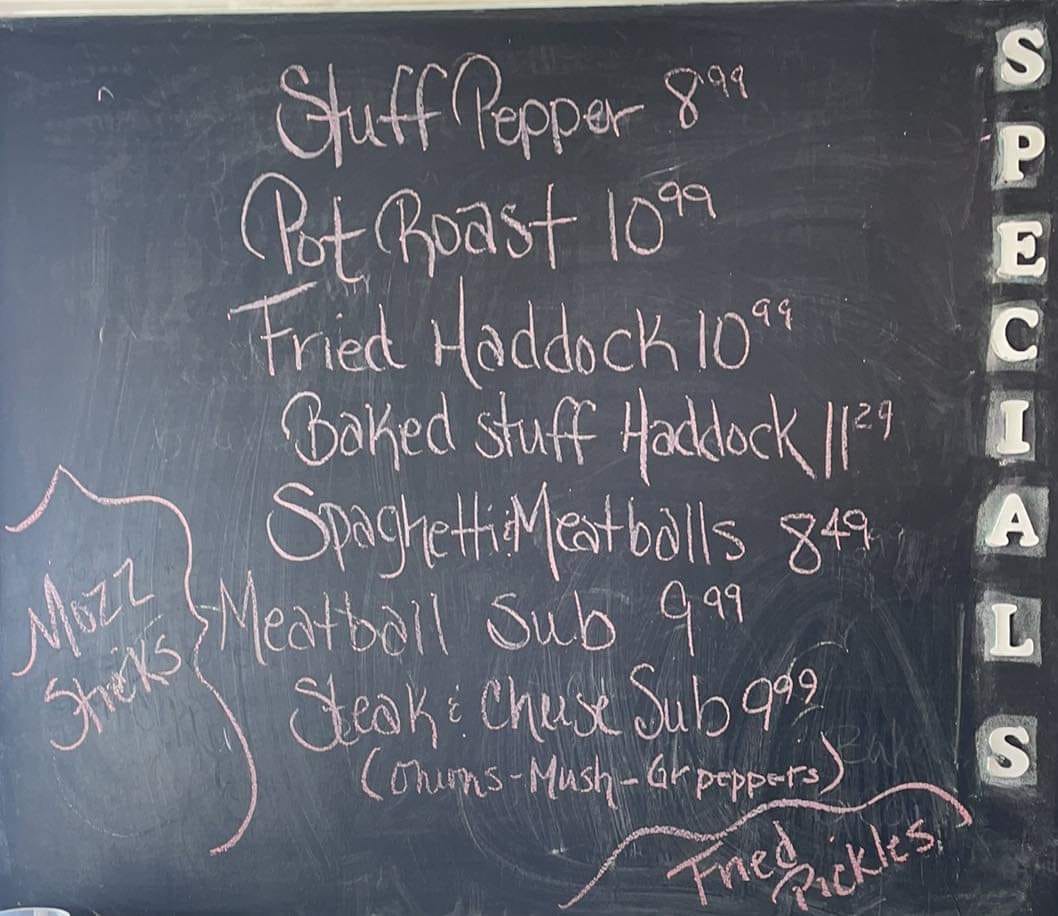 SPECIALS
Stuff Pepper 8 99
Pot Roast 10 99
Fried Haddock 10 99
Baked stuff Haddock 11 29
Spaghetti & Meatballs 8 49
Meatball Sub 9 99
Steak & Cheese Sub 9 99
(Onions - Mush - Gr peppers)
Mozz
Sticks
Fried
Pickles